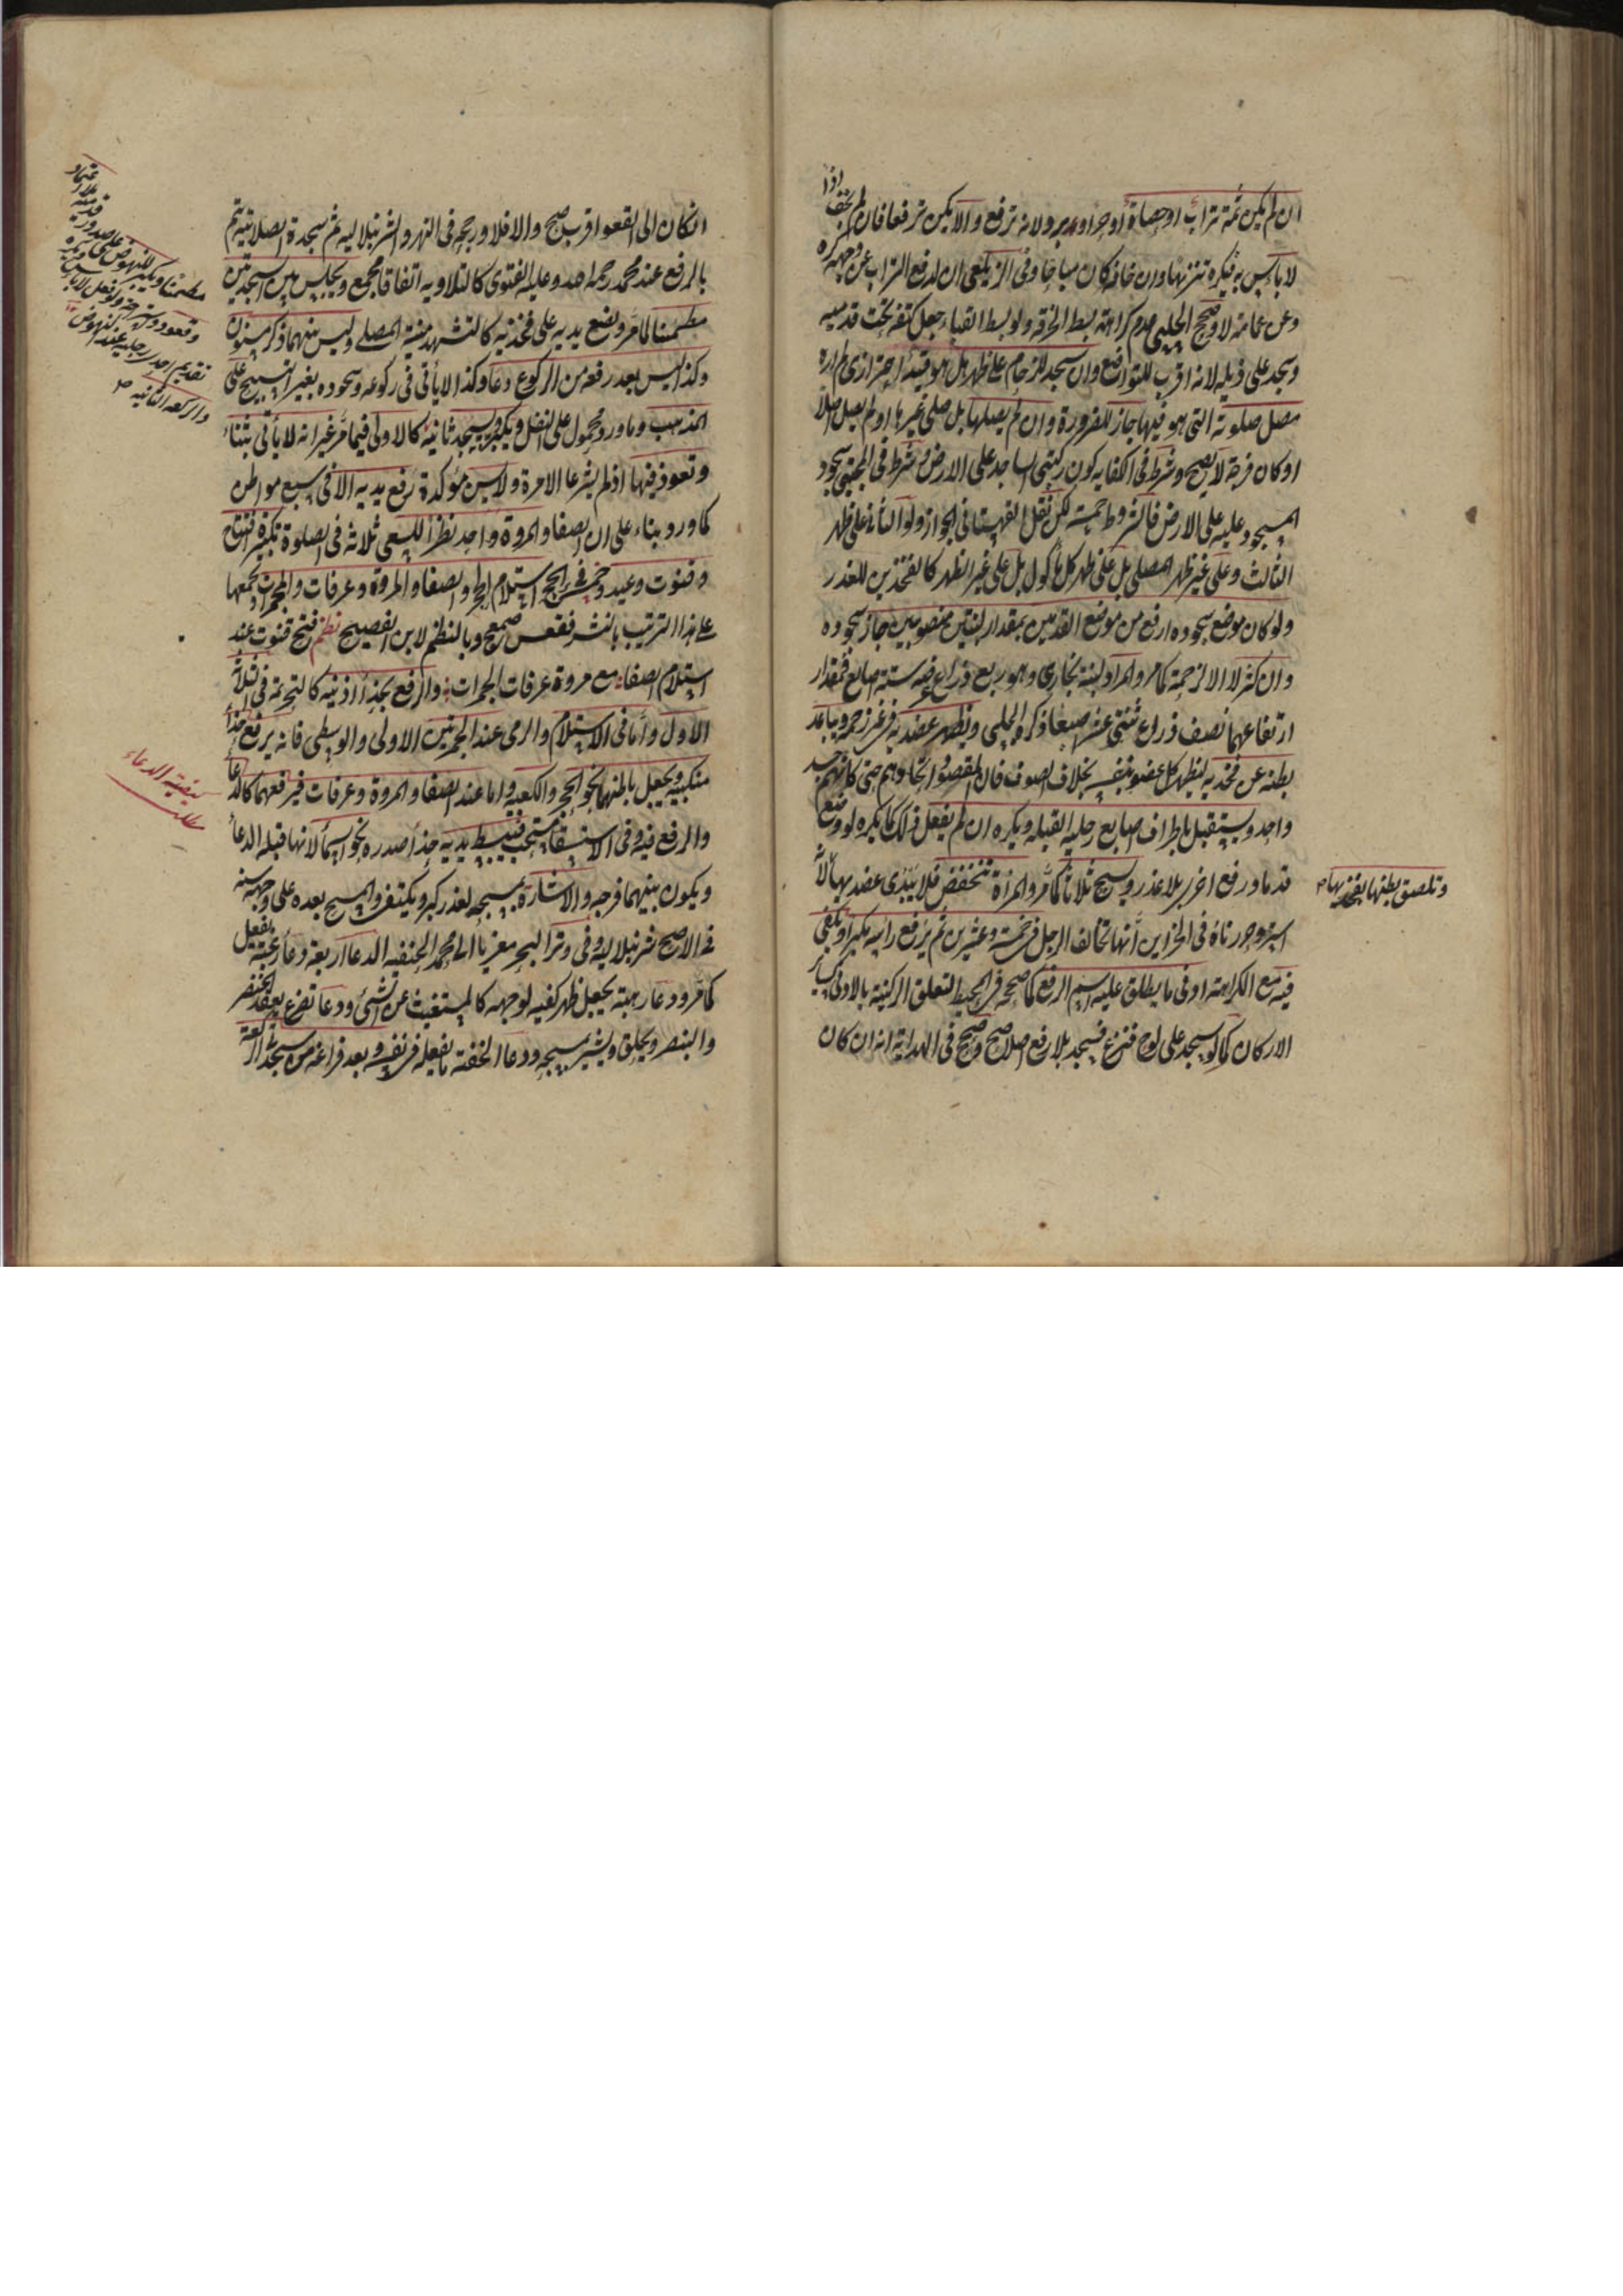 ان لم يكن ثمة تراب او حصاة او حر او برد ولانه ترفع والا يكن ترفعا فان لم يخف اذا
لا بأس به فيكره تنزيها وان خافه كان مباحا وفى الزيلعى ان لدفع التراب عن وجهه كره
وعن عمامته لا وصحح الحلبى عدم كراهة بسط الخرقة ولو بسط القباء جعل كتفه تحت قدميه
وسجد على ذيله لانه اقرب للتواضع وان سجد للزحام على ظهر هل هو قيد احترازى لم اره
مصل صلوته التى هو فيها جاز للضرورة وان لم يصلها بل صلى غيرها او لم يصل اصلا
او كان فرجة لا يصح وشرط فى الكفايه كون ركبتى الساجد على الارض وشرط فى المجتبى سجود
المسجود عليه على الارض فالشروط خمسة لكن نقل القهستانى الجواز ولو الثانى على ظهر
الثالث وعلى غير ظهر المصلى بل على ظهر كل مأكول بل على غير الظهر كالفخذين للعذر
ولو كان موضع سجوده ارفع من موضع القدمين بمقدار لبنتين منصوبتين جاز سجوده
وان اكثر لا الا لزحمة كما مر والمراد لبنة بخارى وهو ربع ذراع عرض ستة اصابع فمقدار
ارتفاعهما نصف ذراع ثنتى عشر اصبعا ذكره الحلبى ويظهر عضديه فى غير زحمة ويباعد
بطنه عن فخذيه ليظهر كل عضو بنفسه بخلاف الصوف فان المقصود اتحادهم حتى كانهم جسد
واحد ويستقبل باطراف اصابع رجليه القبله ويكره ان لم يفعل ذلك كما يكره لو وضع
قدما ورفع اخرى بلا عذر ويسبح ثلاثا كما مر والمرأة تنخفض فلا تبدى عضديها لانه
وتلصق بطنها بفخذيها
استر وحررناه فى الخزاين انها تخالف الرجل فى خمسة وعشرين ثم يرفع رأسه مكبرا ويكفى
فيه مع الكراهة ادنى ما يطلق عليه اسم الرفع كما صححه فى المحيط لتعلق الركنية بالادنى كسائر
الاركان كما لو سجد على لوح فنزع فسجد بلا رفع اصلا صح وصحح فى الهداية انه ان كان
ان كان الى القعود اقرب صح والا فلا ورجحه فى النهر والشرنبلاليه ثم سجدة الصلاتيه تتم
بالرفع عند محمد رحمه الله وعليه الفتوى كالتلاويه اتفاقا مجمع ويجلس بين السجدتين
مطمئنا لما مر ويضع يديه على فخذيه كالتشهد منية المصلى وليس بينهما ذكر مسنون
وكذا ليس بعد رفعه من الركوع دعا وكذا لا يأتى فى ركوعه وسجوده بغير التسبيح على
المذهب وما ورد محمول على النفل ويكبر ويسجد ثانية كالاولى فيما مر غير انه لا يأتى بثناء
وتعوذ فيها اذ لم يشرعا الا مرة ولا يسن مؤكدة رفع يديه الا فى سبع مواطن
كما ورد بناء على ان الصفا والمروة واحد نظرا للسعى ثلاثه فى الصلوة تكبيرة افتتاح
وقنوت وعيد وخمس فى الحج استلام الحجر والصفا والمروة وعرفات والجمرات وتجمعها
على هذا الترتيب بالنشر فقعس صمعج وبالنظم لابن الفصيح نظم فتح قنوت عيد
استلام الصفا مع مروة عرفات الجمرات والرفع بحذاء اذنيه كالتحريمة فى الثلاثة
الاول واما فى الاستلام والرمى عند الجمرتين الاولى والوسطى فانه يرفع حذاء
منكبيه ويجعل باطنهما نحو الحجر والكعبة واما عند الصفا والمروة وعرفات فيرفعهما كالدعاء
والرفع فيه وفى الاستسقاء مستحب فيبسط يديه حذاء صدره نحو السماء لانها قبلة الدعاء
ويكون بينهما فرجه والاشارة بمسبحته لعذر كبرد يكتفى والمسح بعده على وجهه سنة
فى الاصح شرنبلاليه وفى وتر البحر معزيا الى محمد بن الحنفيه الدعا اربعة دعا رغبة يفعل
كما مر ودعا رهبة يجعل ظهر كفيه لوجهه كالمستغيث من الشئ ودعا تضرع يعقد الخنصر
والبنصر ويحلق ويشير بمسبحته ودعا الخفية ما يفعله فى نفسه وبعد فراغه من سجدتى الركعة
مطمئنا ويكبر للنهوض على صدور قدميه بلا اعتماد
وقعود استراحة ولو فعل لا بأس ويكره
تقديم احدى رجليه عند النهوض
والركعه الثانيه
كيفية الدعاء
مطلب